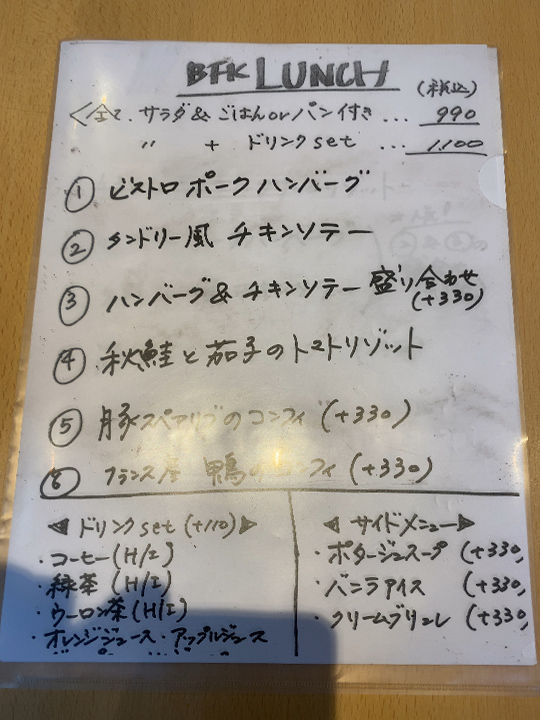 BFK LUNCH
(税込)
<全て. サラダ& ごはんorパン付き ... 990
〃 + ドリンクset ... 1,100
① ビストロ ポークハンバーグ
② タンドリー風 チキンソテー
③ ハンバーグ& チキンソテー 盛り合わせ
(+330)
④ 秋鮭と茄子のトマトリゾット
⑤ 豚スペアリブのコンフィ (+330)
⑥ フランス産 鴨のコンフィ (+330)
◀ ドリンクset (+110) ▶
・コーヒー (H/I)
・緑茶 (H/I)
・ウーロン茶 (H/I)
・オレンジジュース ・アップルジュース
◀ サイドメニュー ▶
・ポタージュスープ (+330)
・バニラアイス (+330)
・クリームブリュレ (+330)